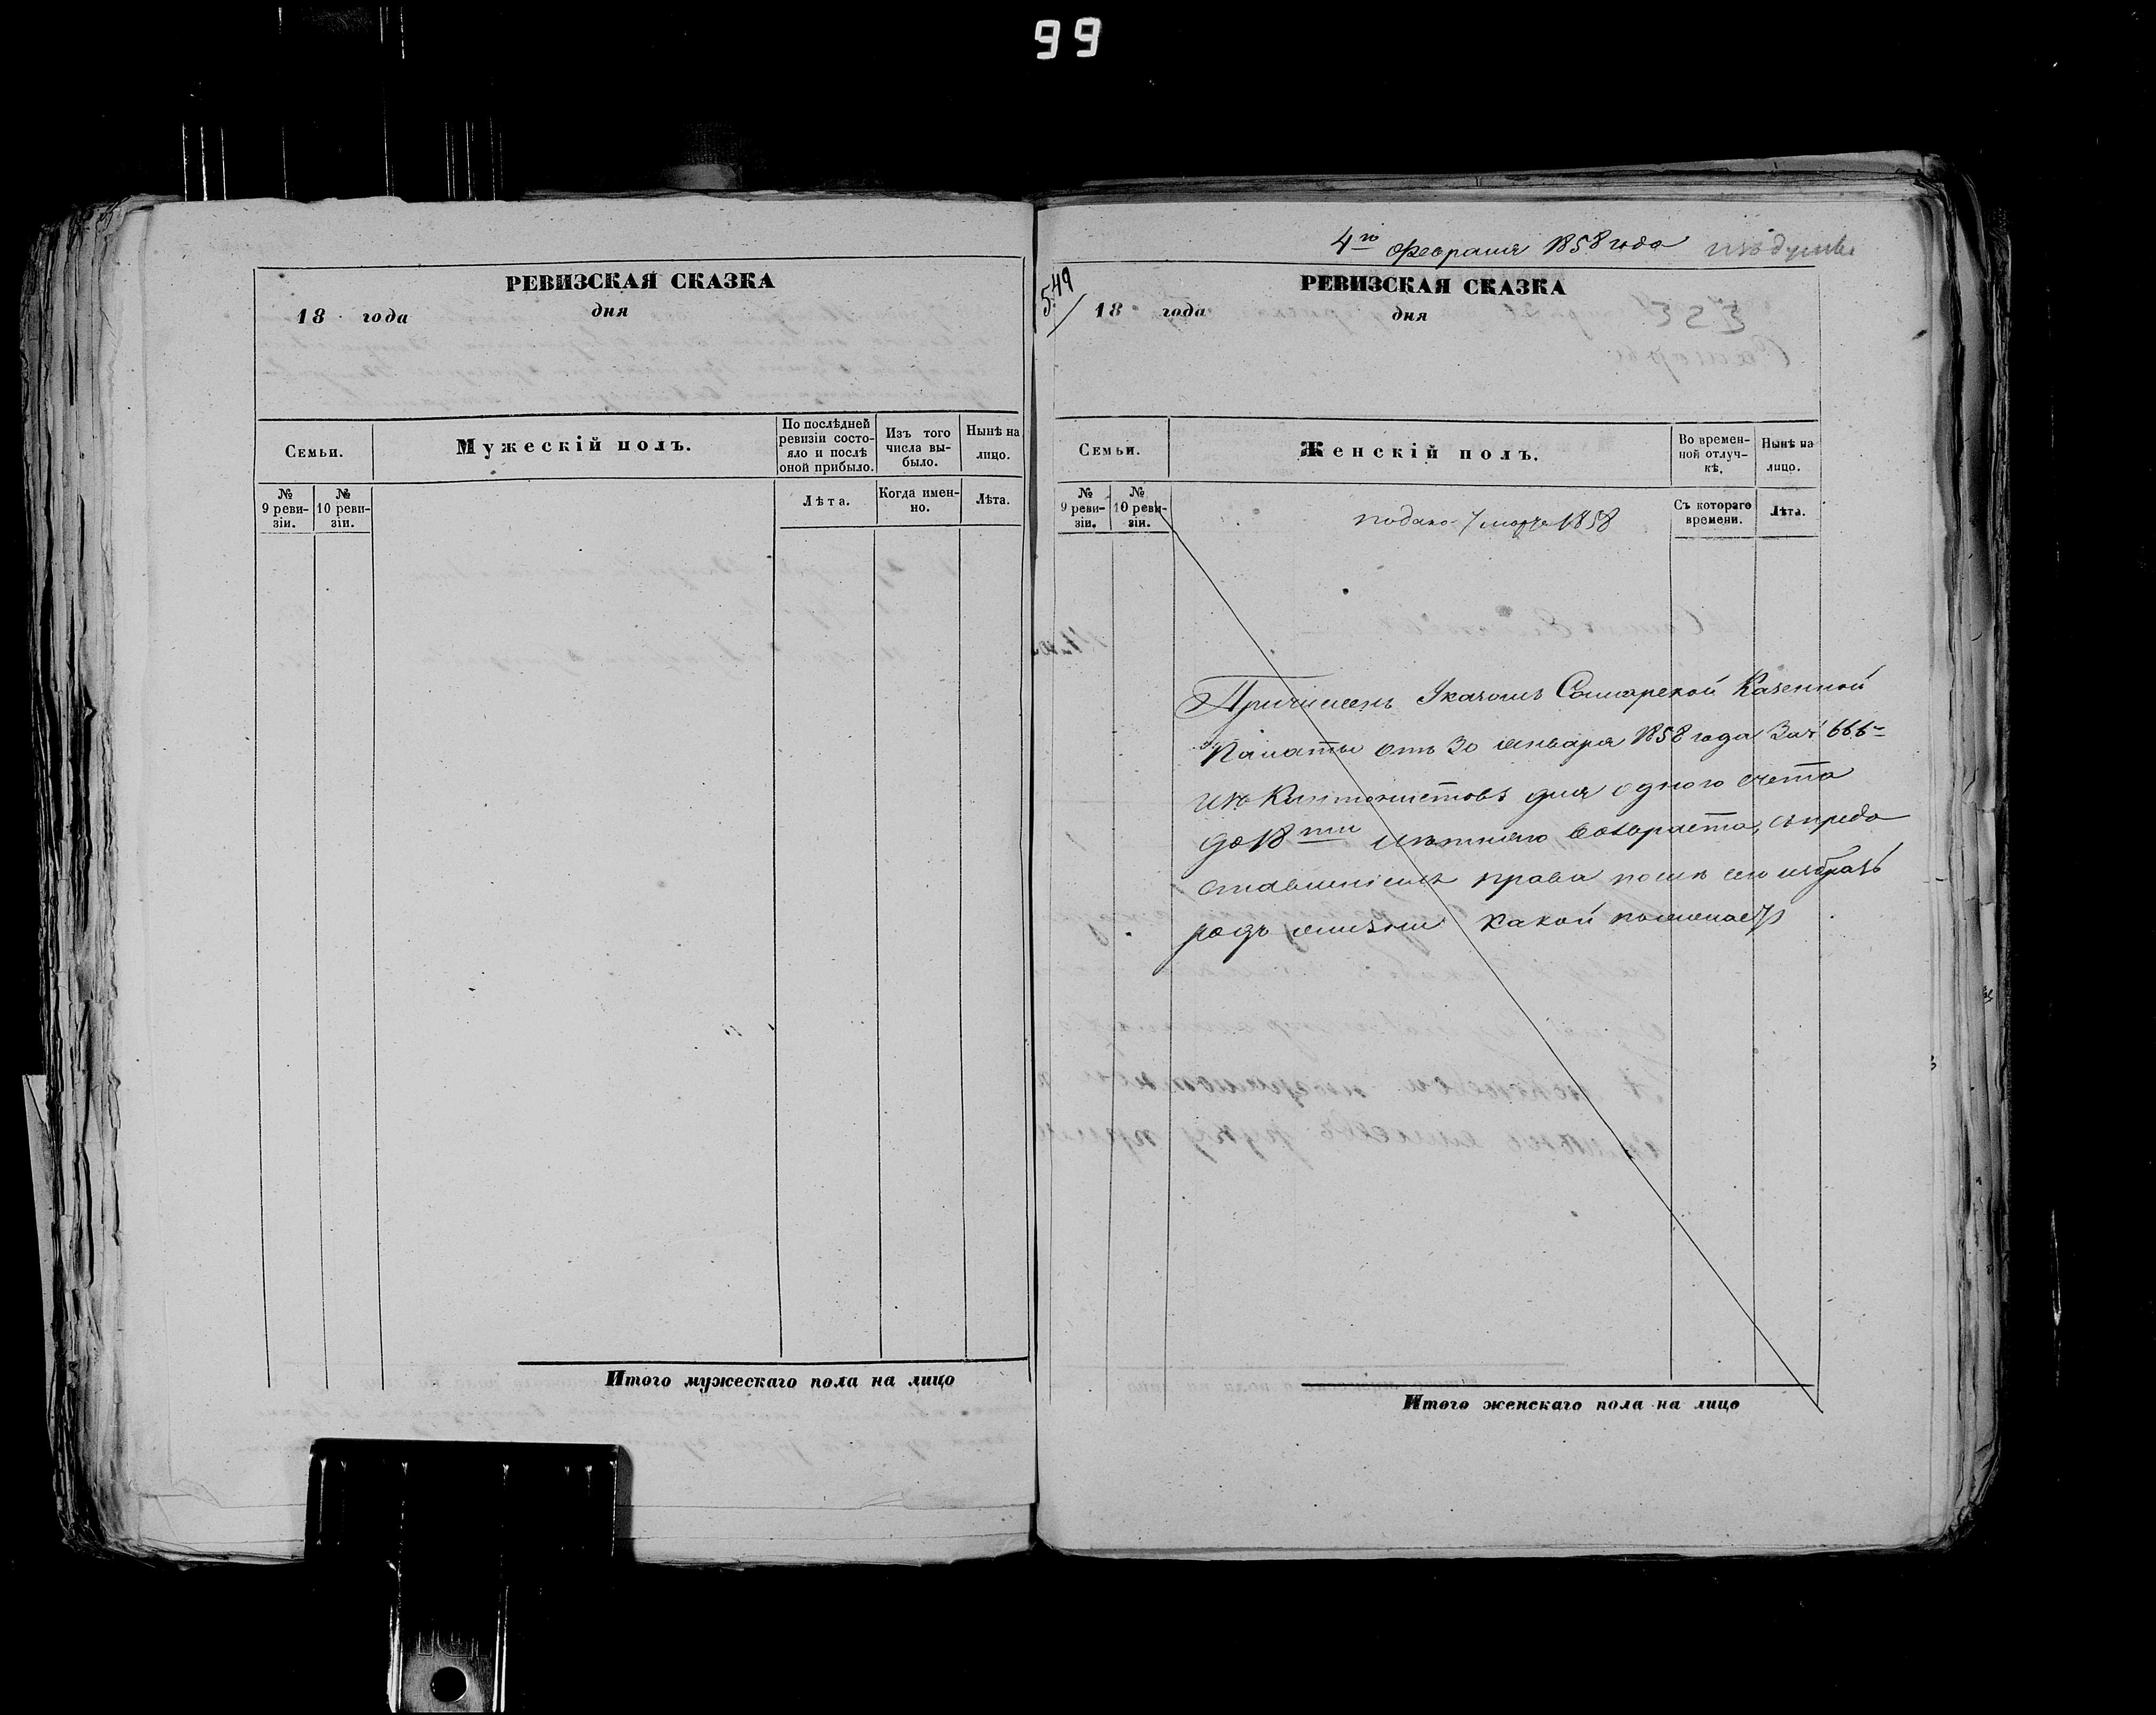 99
РЕВИЗСКАЯ СКАЗКА
18 года дня
Семьи.
Мужескій полъ.
По послѣдней ревизіи состо-
яло и послѣ оной прибыло.
Изъ того числа вы-
было.
Нынѣ на лицо.
№ 9 реви-
зіи.
№ 10 реви-
зіи.
Лѣта.
Когда имен-
но.
Лѣта.
Итого мужескаго пола на лицо
4го Февраля 1858 года
549
РЕВИЗСКАЯ СКАЗКА
18 года дня
323
Семьи.
Женскій полъ.
Во времен-
ной отлуч-
кѣ.
Нынѣ на лицо.
№ 9 реви-
зіи.
№ 10 реви-
зіи.
Съ котораго времени.
Лѣта.
подано 7 марта 1858
Причисленъ Указомъ Самарской Казенной
Палаты отъ 30 января 1858 года За № 666
изъ Кантонистовъ для одного счета
до 18ти лѣтняго возраста, съ предо
ставленіемъ права послѣ сего избрать
родъ жизни какой пожелаетъ
Итого женскаго пола на лицо